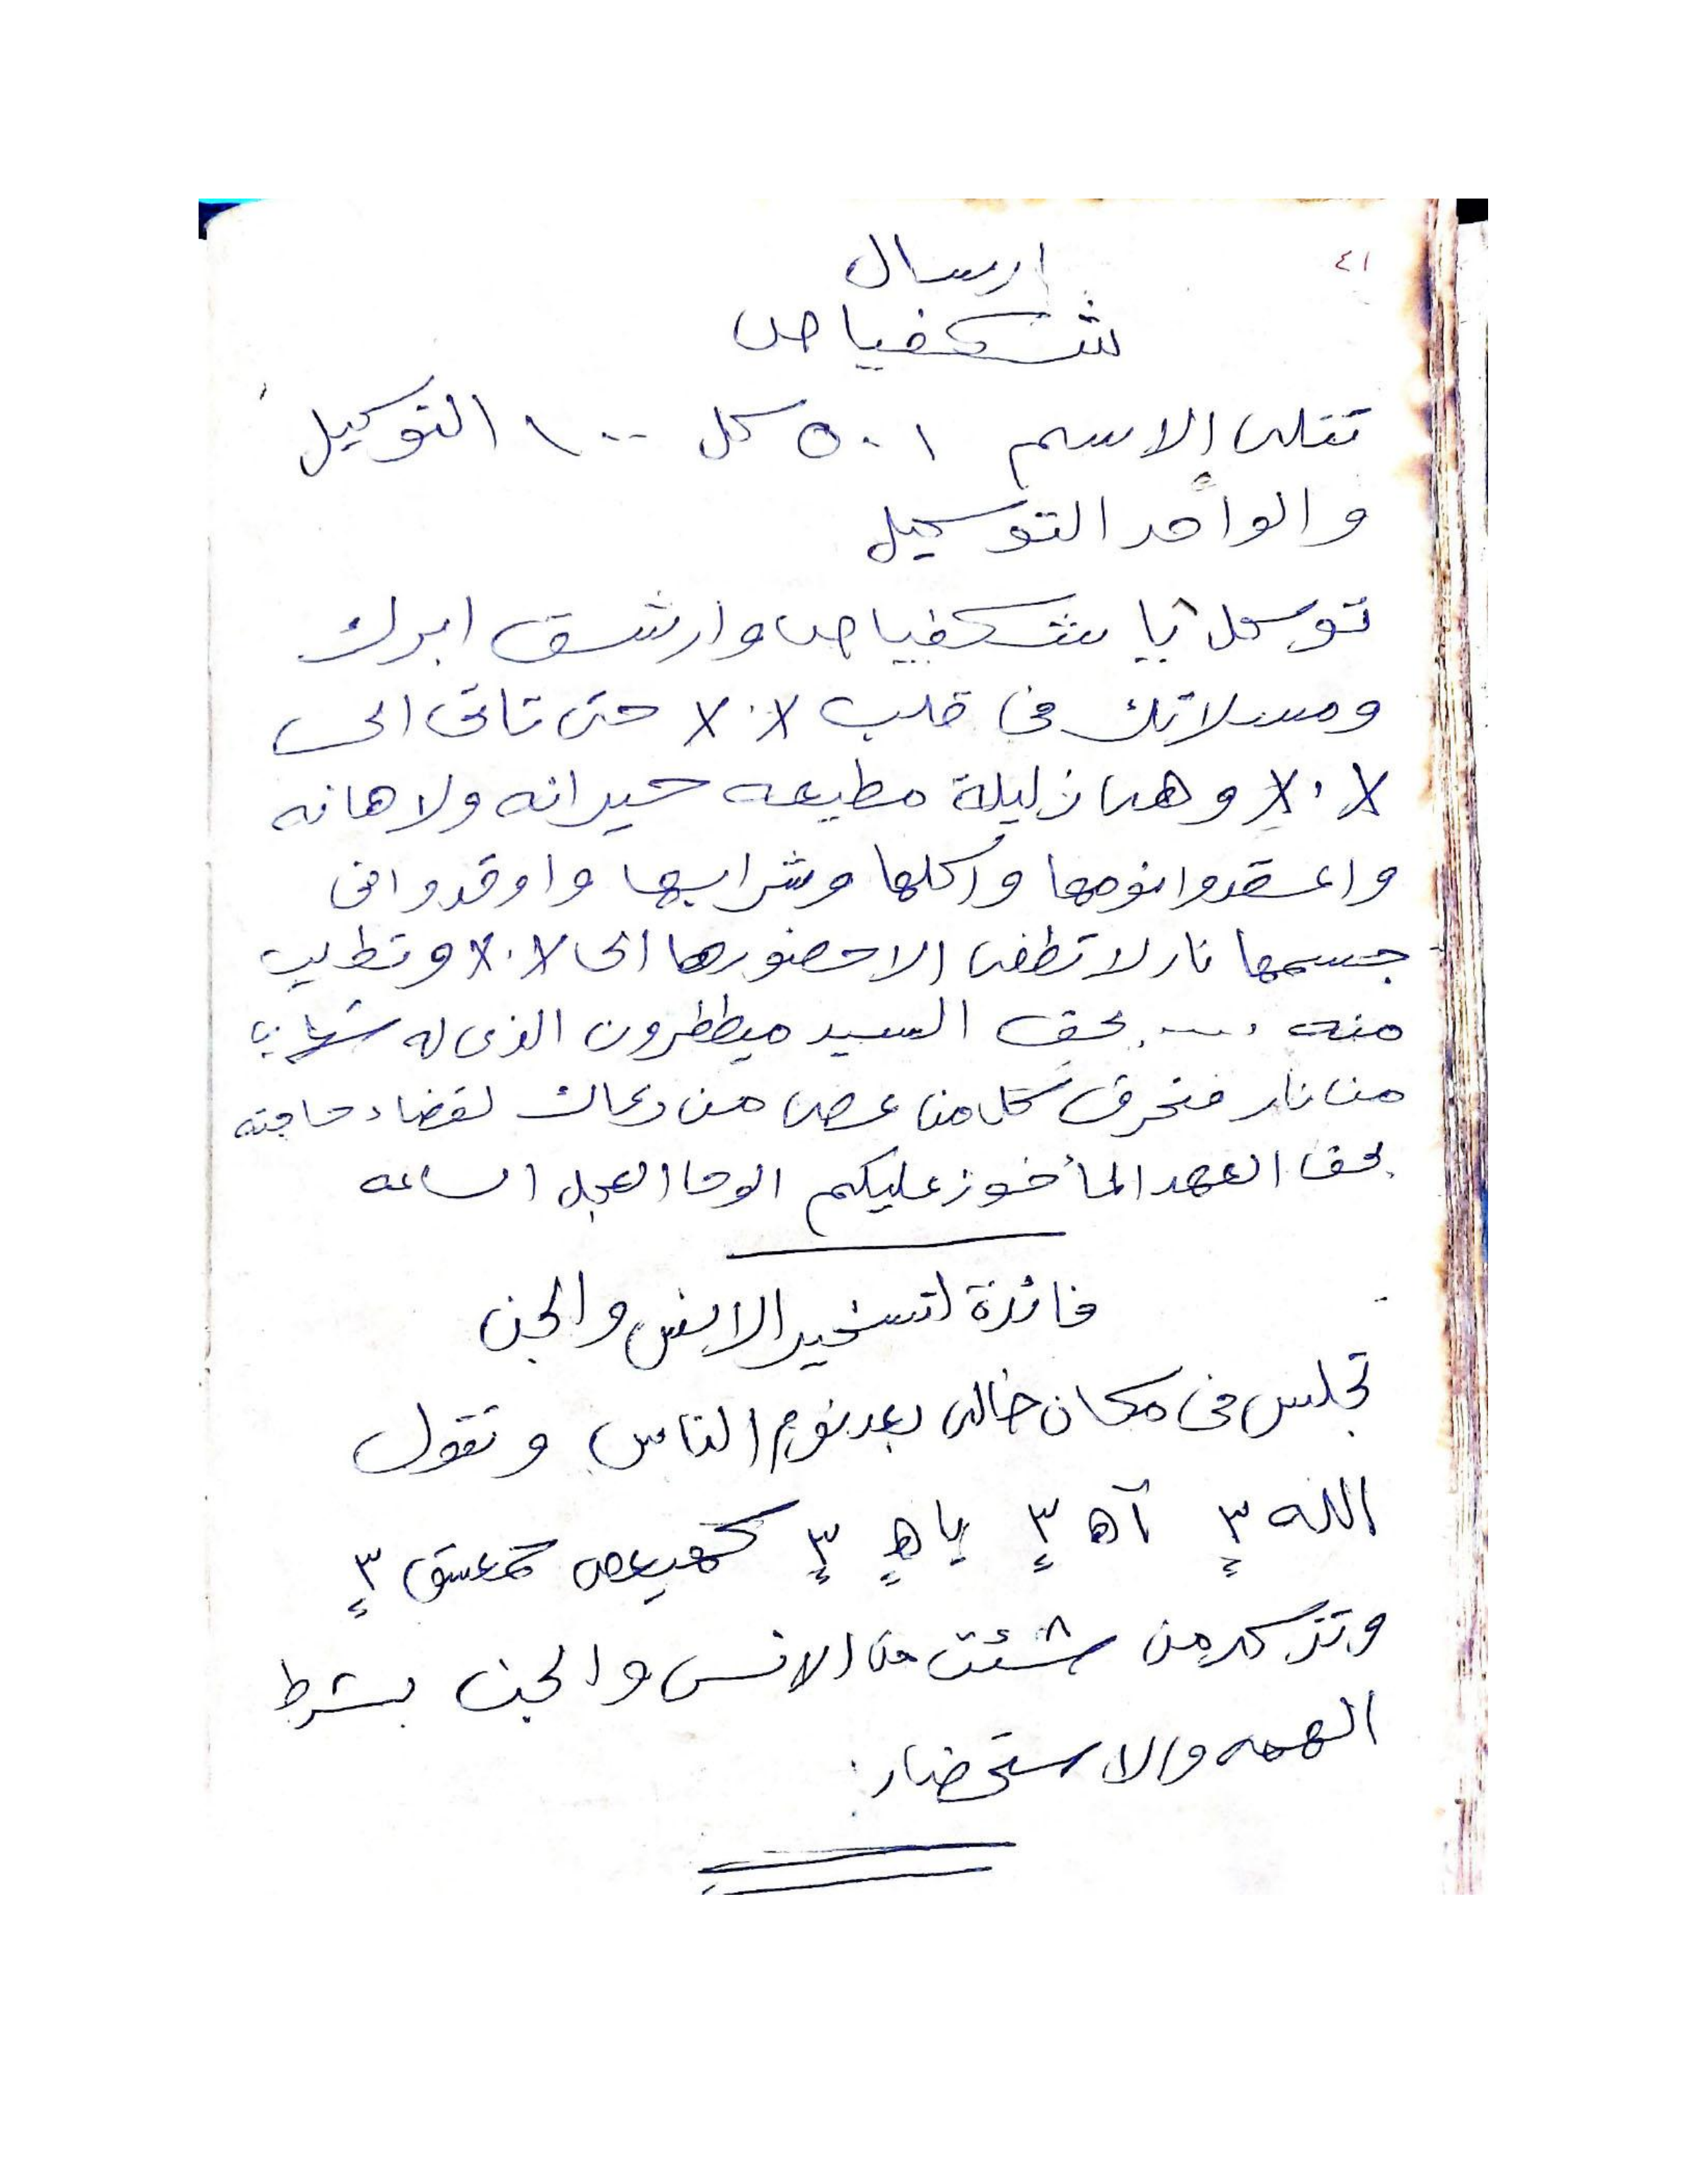 ٤١
ارسال
شكفياص
تتلى الاسم ٥٠١ كل ١٠٠ التوكيل
والواحد التوكيل
توكل يا شكفياص وارشق ابرك
ومسلاتك فى قلب X.X حتى تاتى الى
X.X وهى زليلة مطيعه حيرانه ولاهانه
واعقدوا نومها واكلها وشرابها واوقدوا فى
جسمها نار لا تطفى الا حضورها الى X.X وتطلب
منه .... بحق السيد ميططرون الذى له
من نار فتحرق كل من عصى من دعاك لقضاء حاجته
بحق العهد المأخوز عليكم الوحا العجل الساعه
فائدة لتسخير الانس والجن
تجلس فى مكان خالى بعد نوم الناس وتقول
الله ٣ آه ٣ ياه ٣ كهيعص حمعسق ٣
وتزكر من شئت من الانس والجن بشرط
الهمه والاستحضار